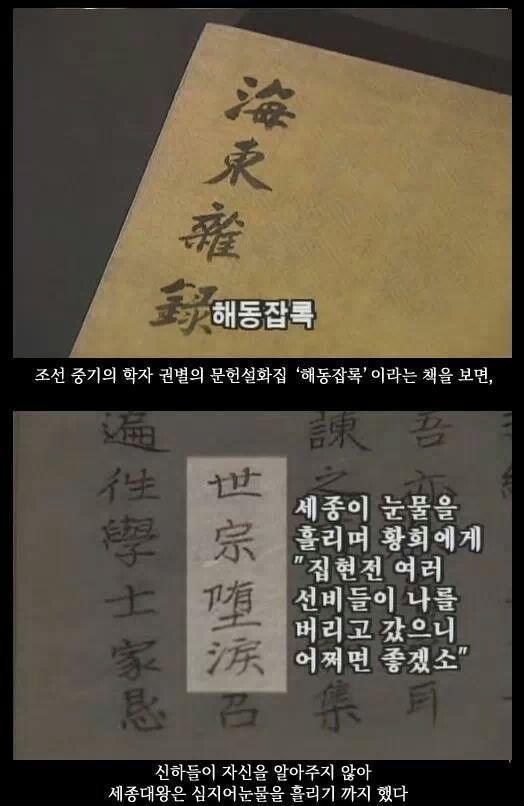 海東雜錄
해동잡록
조선 중기의 학자 권별의 문헌설화집 ‘해동잡록’ 이라는 책을 보면,
吾亦
耳
諫之
集
世宗堕淚召
遍徃學士家懇
세종이 눈물을
흘리며 황희에게
"집현전 여러
선비들이 나를
버리고 갔으니
어쩌면 좋겠소"
신하들이 자신을 알아주지 않아
세종대왕은 심지어눈물을 흘리기 까지 했다